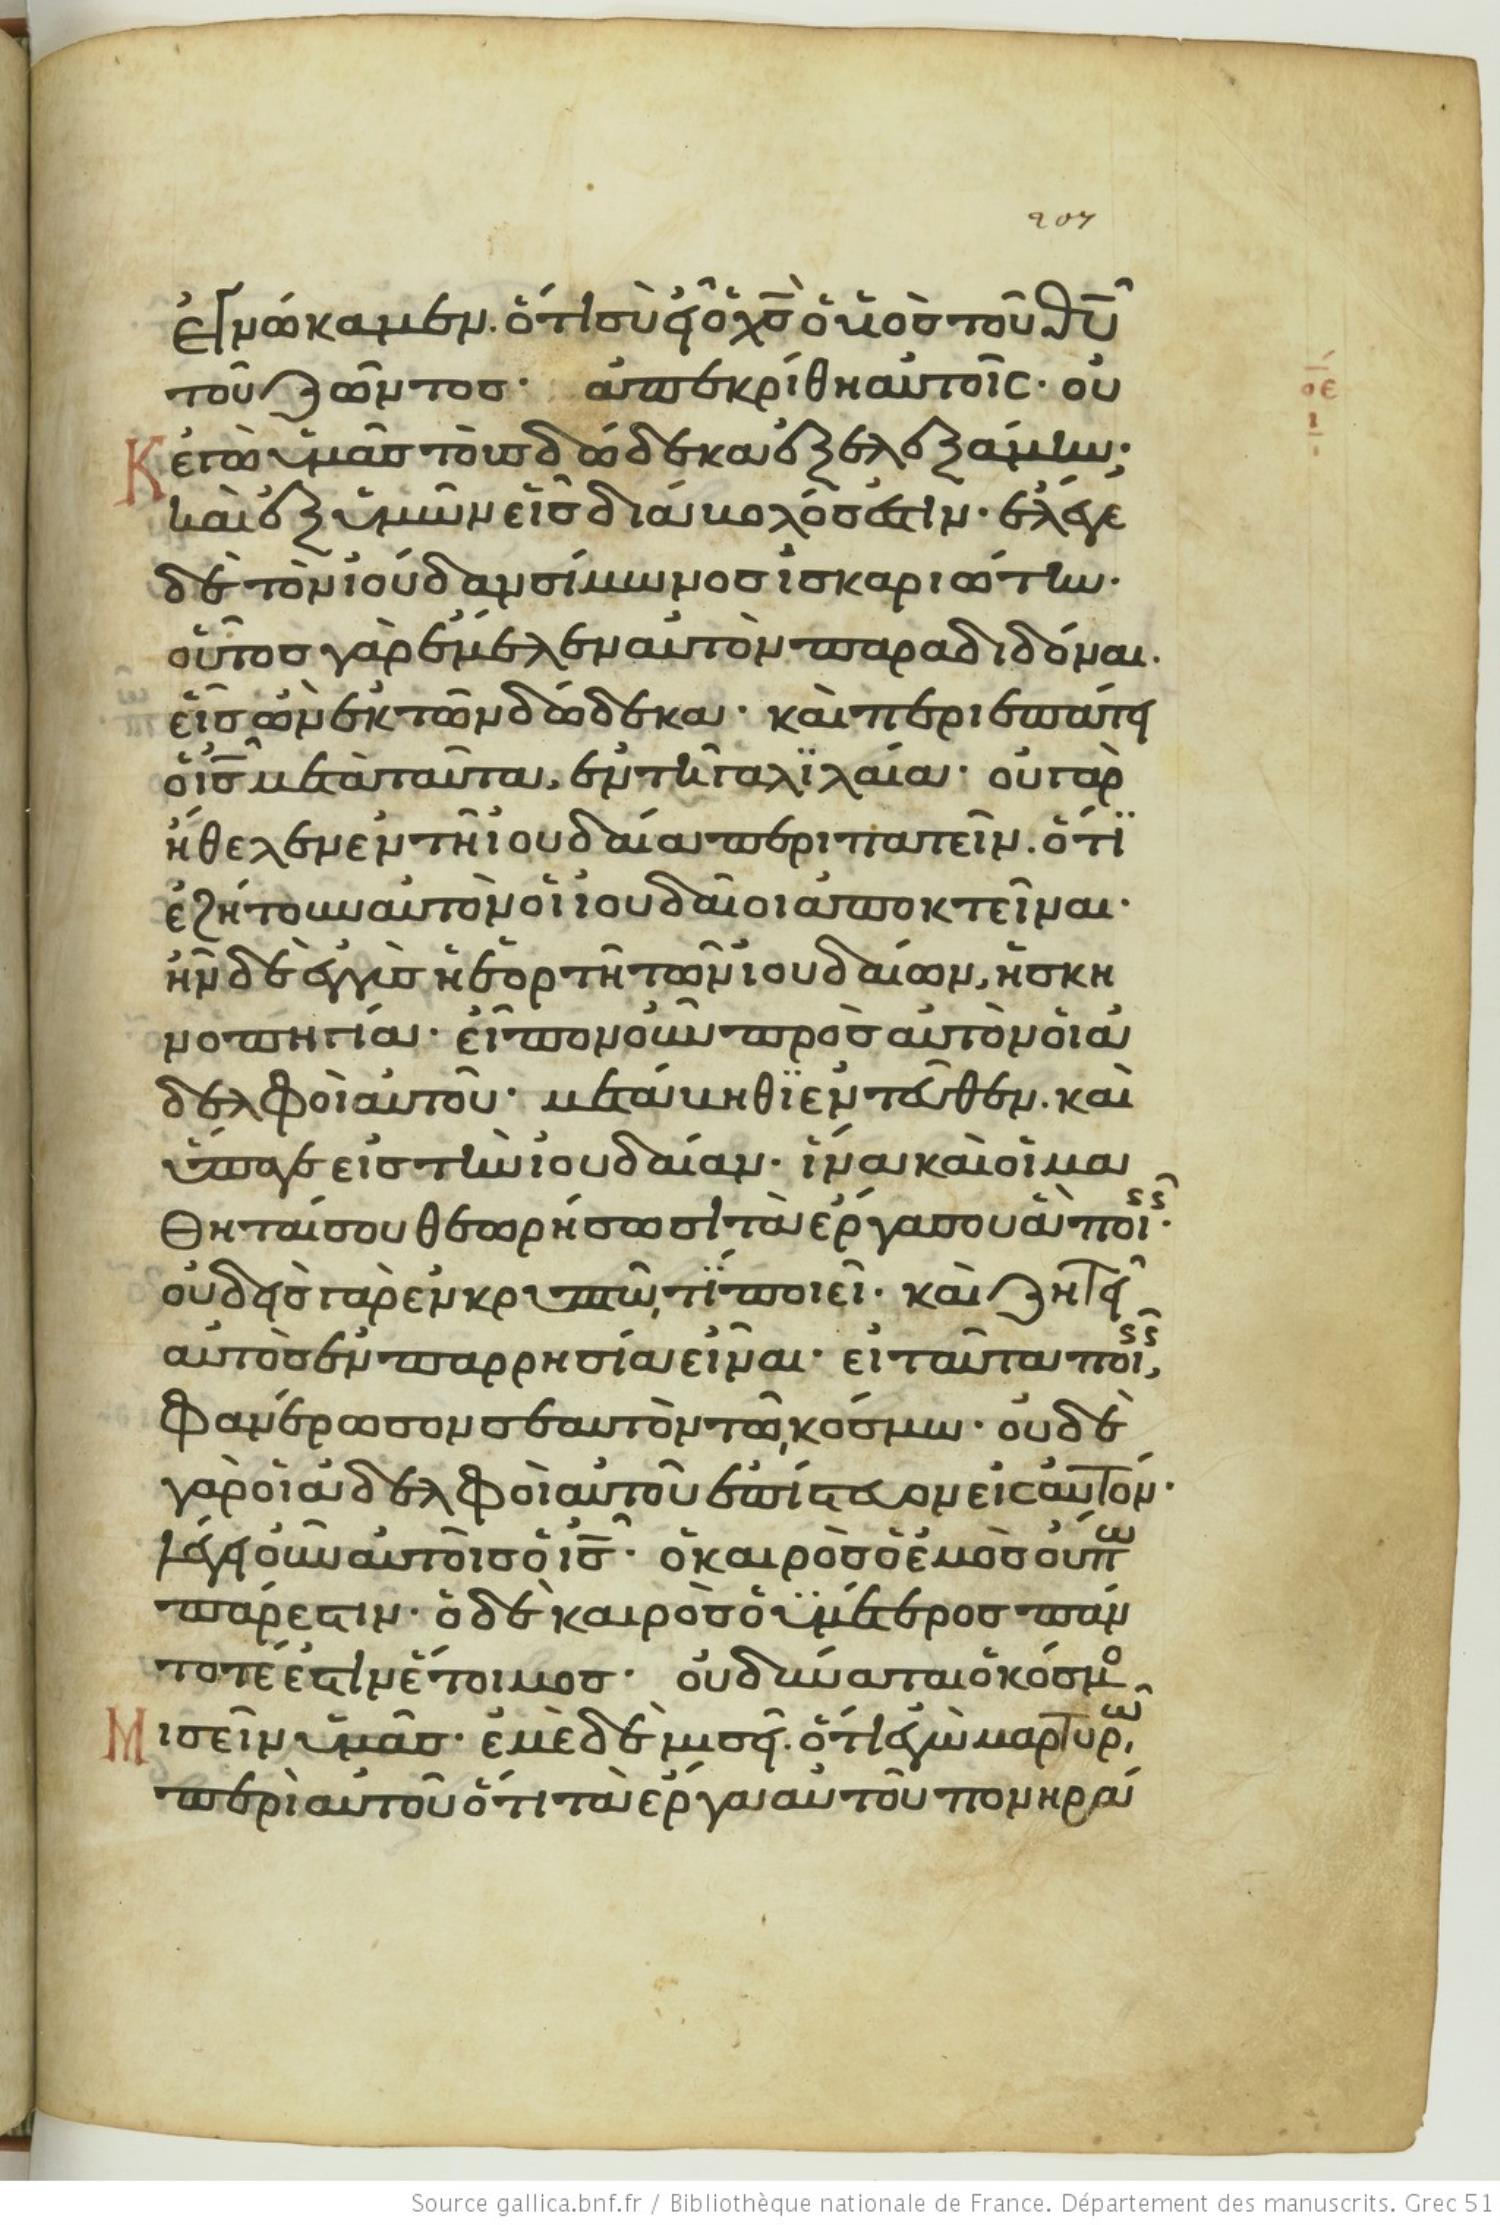 207
ἐγνώκαμεν. ὅτι σὺ εἶ ὁ χ̅σ̅ ὁ υἱὸσ τοῦ θ̅υ̅
τοῦ ζῶντοσ· ἀπεκρίθη αὐτοῖς· οὐ
ο̅ε̅
ι̅
Κ ἐγὼ ὑμᾶσ τοὺσ δώδεκα ἐξελεξάμην·
καὶ ἐξ ὑμῶν εἷσ διάβολόσ ἐστιν· ἔλεγε
δὲ τὸν ἰούδαν σίμωνοσ ἰσκαριώτην·
οὗτοσ γὰρ ἔμελεν αὐτὸν παραδιδόναι.
εἷσ ὢν ἐκ τῶν δώδεκα· καὶ περιεπάτει
ὁ ι̅σ̅ μετὰ ταῦτα, ἐν τῆ γαλϊλαία· οὐ γὰρ
ἤθελεν ἐν τῆ ἰουδαία περιπατεῖν. ὅτϊ
ἐζήτουν αὐτὸν οἱ ἰουδαῖοι ἀποκτεῖναι·
ἦν δὲ ἐγγὺσ ἡ ἑορτὴ τῶν ἰουδαίων, ἡ σκη
νοπηγία· εἶπον οὖν πρὸσ αὐτὸν οἱ ἀ
δελφοὶ αὐτοῦ· μετάβηθϊ ἐντεῦθεν. καὶ
ὕπαγε εἰσ τὴν ἰουδαίαν· ἵνα καὶ οἱ μα
θηταί σου θεωρήσωσι τὰ ἔργα σου ἃ ποιεῖσ·
οὐδεὶσ γὰρ ἐν κρυπτῶ, τϊ ποιεῖ· καὶ ζητεῖ
αὐτὸσ ἐν παρρησία εἶναι· εἰ ταῦτα ποιεῖσ,
φανέρωσον σεαυτὸν τῶ, κόσμω· οὐδὲ
γὰρ οἱ ἀδελφοὶ αὐτοῦ ἐπίστευον εἰς αὐτόν·
λέγει οὖν αὐτοῖσ ὁ ι̅σ̅· ὁ καιρὸσ ὁ ἐμὸσ οὔπω
πάρεστιν· ὁ δὲ καιρὸσ ὁ ὑμέτεροσ πάν
τοτέ ἐστιν ἕτοιμοσ· οὐ δύναται ὁ κόσμο
Μισεῖν ὑμᾶσ· ἐμὲ δὲ μισεῖ. ὅτι ἐγὼ μαρτυρῶ,
περὶ αὐτοῦ ὅτι τὰ ἔργα αὐτοῦ πονηρά
Source gallica.bnf.fr / Bibliothèque nationale de France. Département des manuscrits. Grec 51